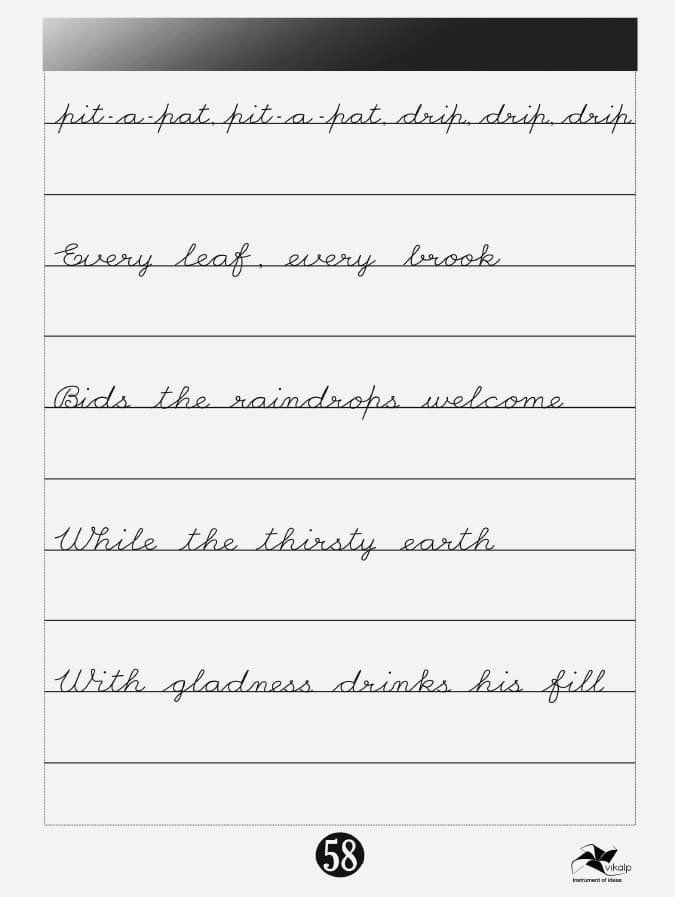 pit-a-pat, pit-a-pat, drip, drip, drip
Every leaf, every brook
Bids the raindrops welcome
While the thirsty earth
With gladness drinks his fill
58
vikalp
Instrument of ideas